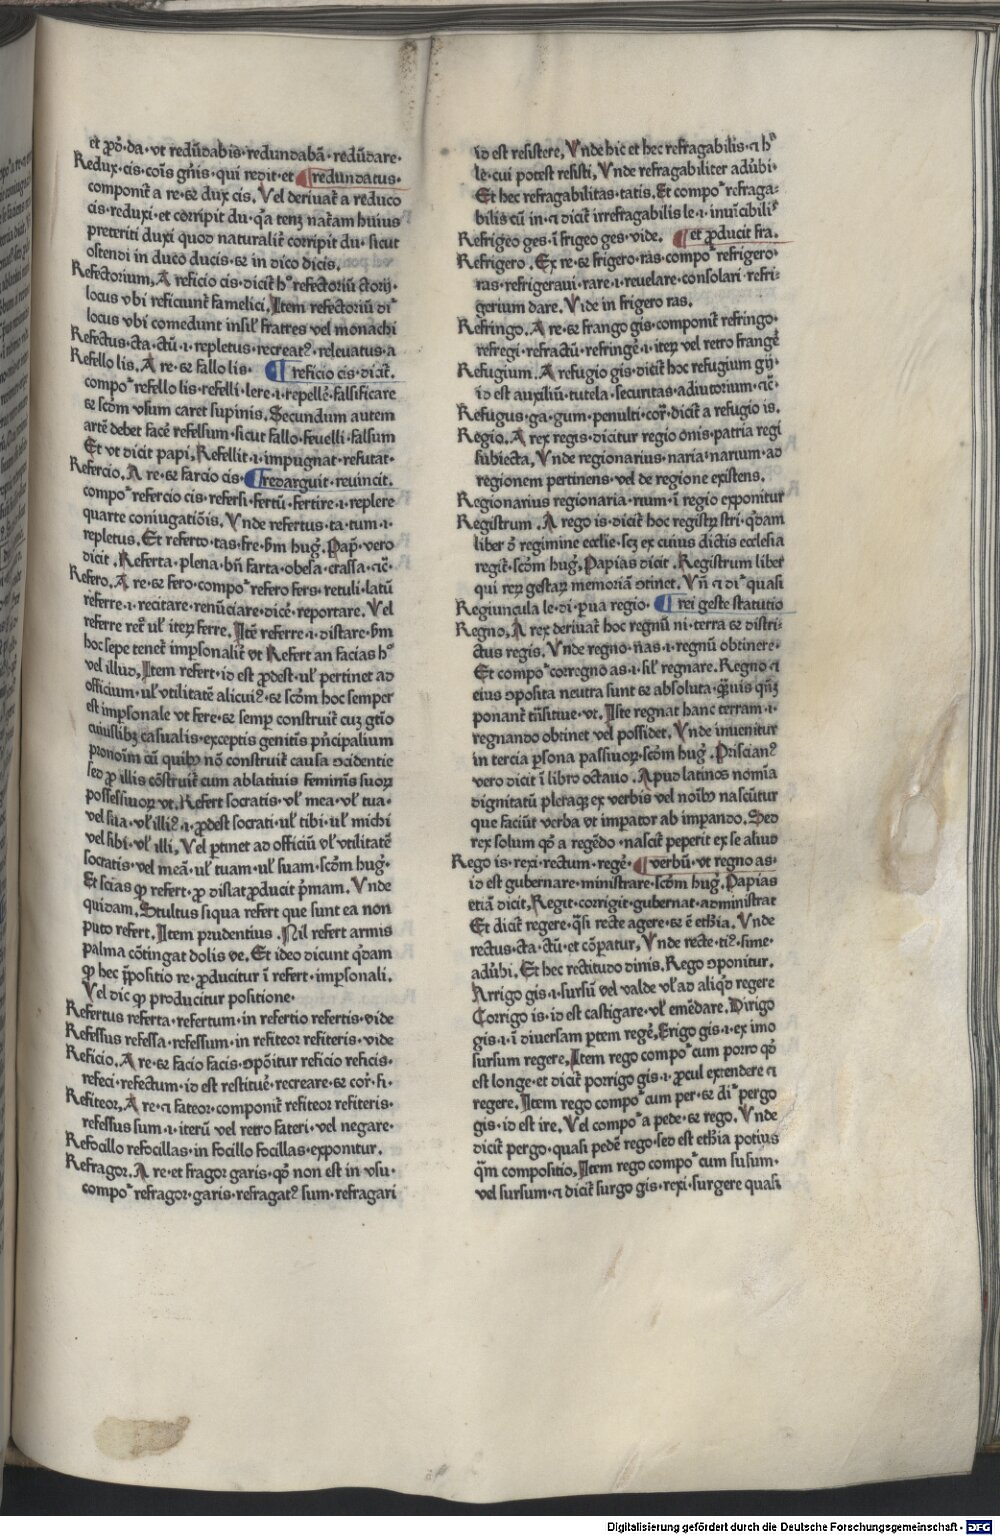 et ꝓdͦ·da·vt redūdabis·redundabā·redūdare·
Redux·cis·cōis gn̄is·qui redit·et ¶redundatus·
componit̄ a re·ꝛ dux cis. Vel deriuat̄ a reduco
cis·reduxi·et corripit du·qꝛa tenꝫ nat̄am huius
preteriti duxi quod naturalit̄ corripit du·sicut
ostendi in duco ducis·ꝛ in dico dicis.
Refectorium, A reficio cis·dicit̄ hͦ refectoriū ctorij·
locus vbi reficiunt̄ famelici. Item refectoriū di͛
locus vbi comedunt insil̄ fratres vel monachi
Refectus·cta·ctū·i·repletus·recreatꝰ·releuatus·a
Refello lis. A re·ꝛ fallo lis· ¶ reficio cis·dicit̄.
compo͛ refello lis·refelli·lere·i·repellē·falsificare
ꝛ scd̄m vsum caret supinis. Secundum autem
artē debet facē refelsum·sicut fallo·feuelli·falsum
Et vt dicit papi, Refellit·i·impugnat·refutat·
Refercio. A re·ꝛ farcio cis· ¶redarguit·reuincit.
compo͛ refercio cis·refersi·fertū·fertire·i·replere
quarte coniugatiōis. Vnde refertus·ta·tum·i·
repletus. Et referto·tas·fre·ẜm hug̅. Pap̄·vero
dicit. Referta·plena·bn̄ farta·obesa·crassa·ꝛc̄·
Refero. A re·ꝛ fero·compo͛ refero fers·retuli·latū
referre·i·recitare·renūciare·dicē·reportare. Vel
referre ret͛ ul̓ iteꝝ ferre. Itē referre·i·distare·ẜm
hoc sepe tenet̄ imꝑsonalit̄ vt Refert an facias hͦ
vel illud, Item refert·id est ꝓdest·ul̓ pertinet ad
officium·ul̓ vtilitatē alicuiꝰ·ꝛ scd̄m hoc semper
est imꝑsonale vt fere·ꝛ semꝑ construit̄ cuꝫ gt̄io
cuiuslibꝫ casualis·exceptis genitis pn̄cipalium
pronoim̄ cū quibꝰ nō construit̄ causa ꝯcidentie
sed ꝓ illis cōstruit̄ cum ablatiuis feminīs suoꝝ
possessiuoꝝ vt. Refert socratis·vl̓ mea·vl̓ tua·
vel sua·vl̓ illiꝰ·i·ꝓdest socrati·ul̓ tibi·ul̓ michi
vel sibi·vl̓ illi, Vel ꝑtinet ad officiū vl̓ vtilitatē
socratis·vel meā·ul̓ tuam·ul̓ suam·scd̄m hug̅·
Et scias ꝙ refert·ꝓ distat ꝓducit p̄mam. Vnde
quidam. Stultus si qua refert que sunt ea non
puto refert. Item prudentius. Nil refert armis
palma cōtingat dolis ve. Et ideo dicunt qͥdam
ꝙ hec p̄positio re·ꝓducitur ī refert·imꝑsonali.
Vel dic ꝙ producitur positione·
Refertus referta·refertum·in refertio refertis·vide
Refessus refessa·refessum·in refiteor refiteris·vide
Reficio. A re·ꝛ facio facis·ꝯpōitur reficio reficis·
refeci·refectum·id est restituē·recreare·ꝛ cor̄·fi·
Refiteor, A re·ꝛ fateor·componit̄ refiteor refiteris·
refessus sum·i·iterū vel retro fateri·vel negare·
Refocillo refocillas·in focillo focillas·exponitur.
Refragor. A re·et fragor garis·qd̄ non est in vsu·
compo͛ refragor·garis·refragatꝰ sum·refragari
id est resistere, Vnde hic et hec refragabilis·ꝛ hͦ
le·cui potest resisti, Vnde refragabiliter adūbi·
Et hec refragabilitas·tatis. Et compo͛ refraga⸗
bilis cū in·ꝛ dicit̄ irrefragabilis le·i·inuīcibilis
Refrigeo ges·ī frigeo ges·vide. ¶et ꝓducit fra.
Refrigero. Ex re·ꝛ frigero·ras·compo͛ refrigero·
ras·refrigeraui·rare·i·reuelare·consolari·refri⸗
gerium dare. Vide in frigero ras.
Refringo. A re·ꝛ frango gis·componit̄ refringo·
refregi·refractū·refringē·i·iteꝝ vel retro frangē
Refugium. A refugio gis·dicit̄ hoc refugium gij·
id est auxiliū·tutela·securitas·adiutorium·ꝛc̄·
Refugus·ga·gum·penulti·cor̄·dicit̄ a refugio is.
Regio. A rex regis·dicitur regio onis·patria regi
subiecta, Vnde regionarius·naria·narium·ad
regionem pertinens·vel de regione existens.
Regionarius regionaria·rium·ī regio exponitur
Registrum. A rego is·dicit̄ hoc registꝝ stri·qͦdam
liber ꝺ̄ regimine ecclie·scꝫ ex cuius dictis ecclesia
regit̄·scd̄m hug̅. Papias dicit. Registrum liber
qui reꝝ gestaꝝ memoriā ꝯtinet. Vn̄ ꝛ di͛ quasi
Regiuncula le·di·ꝑua regio· ¶ rei geste statutio
Regno, A rex deriuat̄ hoc regnū ni·terra ꝛ distri⸗
ctus regis. Vnde regno·nas·i·regnū obtinere·
Et compo͛ corregno as·i·sil̓ regnare. Regno ꝛ
eius ꝯposita neutra sunt ꝛ absoluta·qͣuis qn̄ꝫ
ponant̄ tn̄sitiue·vt. Iste regnat hanc terram·i·
regnando obtinet vel possidet. Vnde inuenitur
in tercia ꝑsona passiuoꝝ·scd̄m hug̅. Priscianꝰ
vero dicit ī libro octauo. Apud latinos nomīa
dignitatū pleraqꝫ ex verbis vel noībꝰ nascūtur
que faciūt verba vt imꝑator ab imꝑando. Sed
rex solum qd̄ a regēdo·nascit̄ peperit ex se aliud
Rego is·rexi·rectum·regē· ¶verbū·vt regno as·
id est gubernare·ministrare·scd̄m hug̅. Papias
etiā dicit, Regit·corrigit·gubernat·administrat
Et dicit̄ regere·qͣsi recte agere·ꝛ ē ethīa. Vnde
rectus·cta·ctū·et cōꝑatur, Vnde recte·tiꝰ·sime·
adūbi. Et hec rectitudo dinis. Rego ꝯponitur.
Arrigo gis·i·sursū vel valde vl̓ ad aliqͥd regere
Corrigo is·id est castigare·vl̓ emēdare. Dirigo
gis·i·ī diuersam ꝑtem regē, Erigo gis·i·ex imo
sursum regere, Item rego compo͛ cum porro qd̄
est longe·et dicit̄ porrigo gis·i·ꝓcul extendere ꝛ
regere. Item rego compo͛ cum per·ꝛ di͛ pergo
gis·id est ire. Vel compo͛ a pede·ꝛ rego. Vnde
dicit̄ pergo·quasi pedē rego·sed est ethīa potius
qͣm compositio, Item rego compo͛ cum susum·
vel sursum·ꝛ dicit̄ surgo gis·rexi·surgere quasi
Digitalisierung gefördert durch die Deutsche Forschungsgemeinschaft - DFG